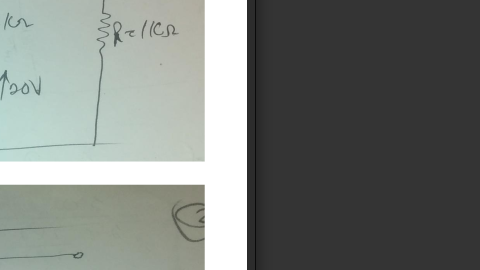 KΩ
R=1KΩ
↑20V
2